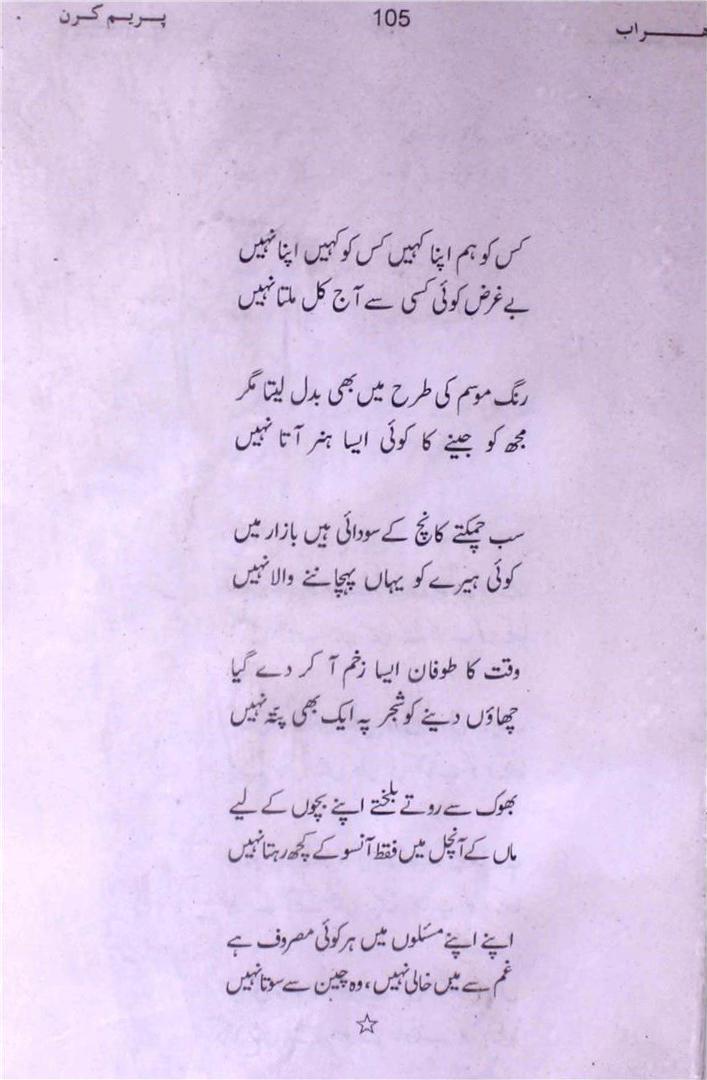 پریم کرن 105
کس کو ہم اپنا کہیں کس کو کہیں اپنا نہیں
بے غرض کوئی کسی سے آج کل ملتا نہیں
رنگ موسم کی طرح میں بھی بدل لیتا مگر
مجھ کو جینے کا کوئی ایسا ہنر آتا نہیں
سب چمکتے کانچ کے سودائی ہیں بازار میں
کوئی ہیرے کو یہاں پہچاننے والا نہیں
وقت کا طوفان ایسا زخم آ کر دے گیا
چھاؤں دینے کو شجر پہ ایک بھی پتّہ نہیں
بھوک سے روتے بلختے اپنے بچوں کے لیے
ماں کے آنچل میں فقط آنسو کے کچھ رہتا نہیں
اپنے اپنے مسئلوں میں ہر کوئی مصروف ہے
غم سے میں خالی نہیں، وہ چین سے سوتا نہیں
☆